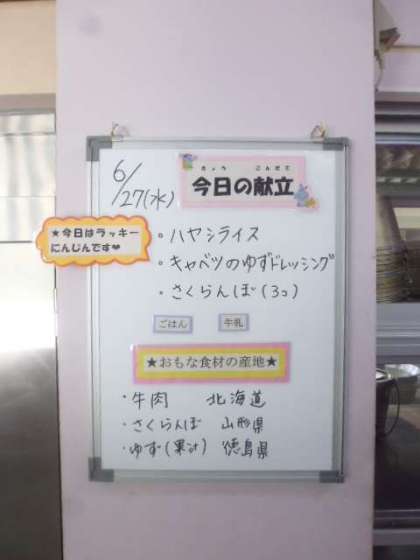 6/27(水)
きょう こんだて
今日の献立
★今日はラッキー
にんじんです♥
・ハヤシライス
・キャベツのゆずドレッシング
・さくらんぼ(3コ)
ごはん 牛乳
★おもな食材の産地★
・牛肉 北海道
・さくらんぼ 山形県
・ゆず(果汁) 徳島県